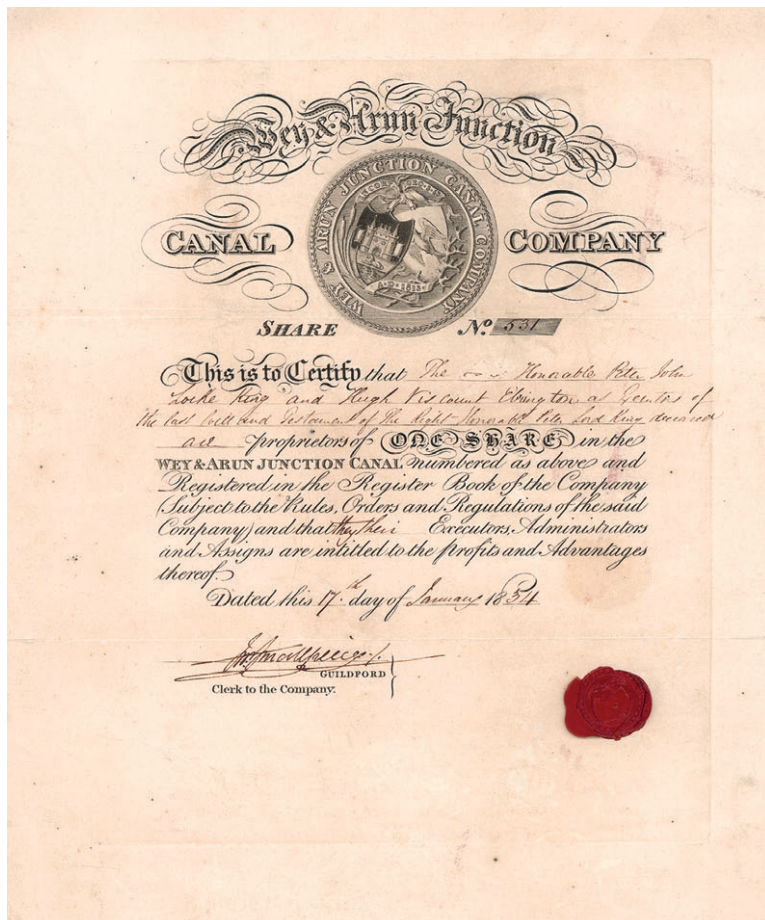 Wey & Arun Junction
WEY & ARUN JUNCTION CANAL COMPANY
INCORPORATED
A·D·1813
CANAL COMPANY
SHARE No. 531
This is to Certify that The Honorable Peter John
Locke King and Hugh Viscount Ebrington as Executors of
the last Will and Testament of The Right Honorable Peter Lord King deceased
are proprietors of ONE SHARE in the
WEY & ARUN JUNCTION CANAL numbered as above and
Registered in the Register Book of the Company
(Subject to the Rules, Orders and Regulations of the said
Company) and that they their Executors, Administrators
and Assigns are intitled to the profits and Advantages
thereof.
Dated this 17.th day of January 1854
GUILDFORD
Clerk to the Company.